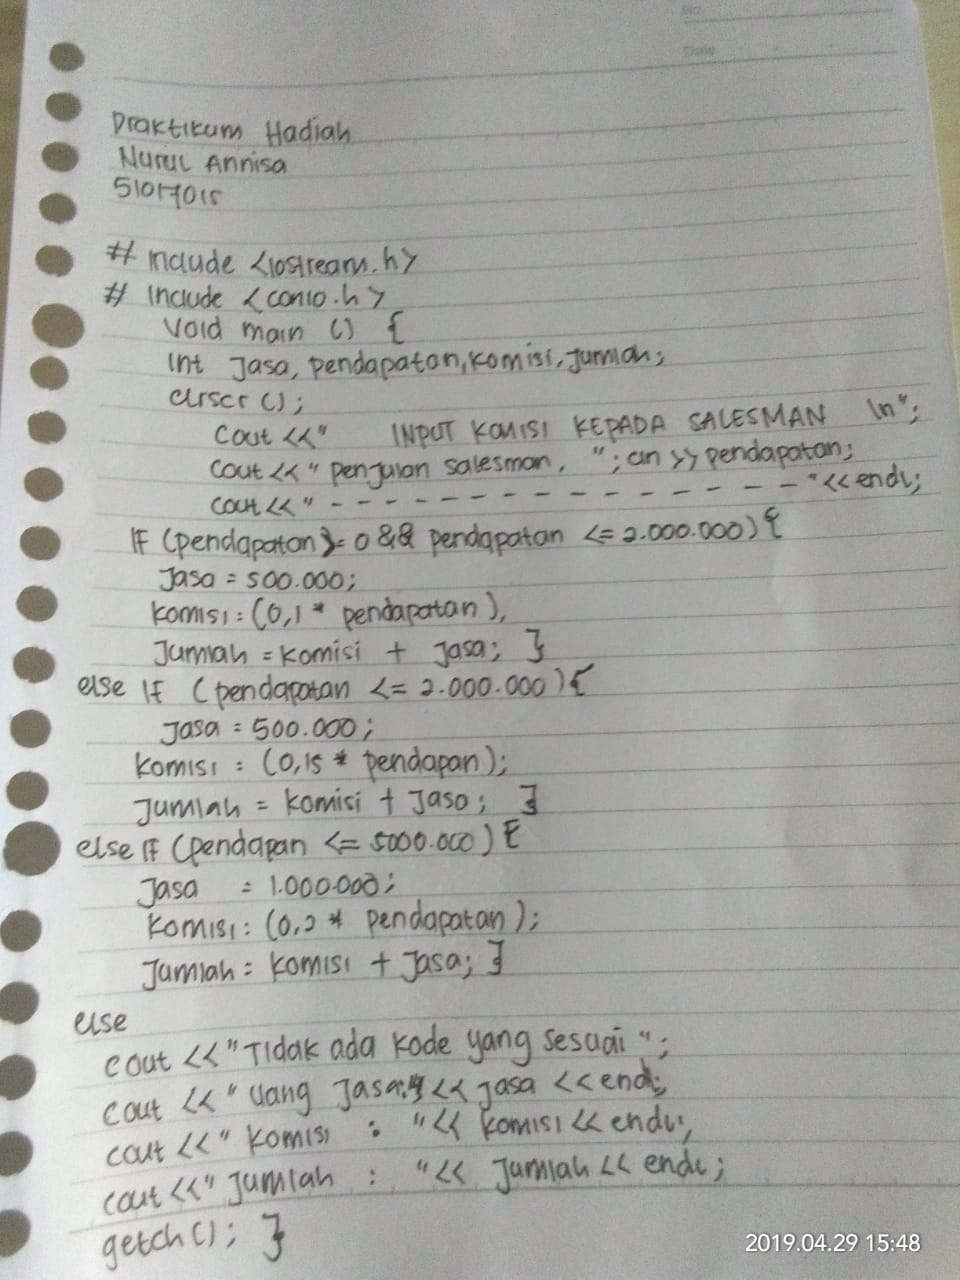 No.
Date
Praktikum Hadiah
Nurul Annisa
51017015
# Include <iostream.h>
# Include <conio.h>
Void main () {
Int Jasa, pendapatan, komisi, jumlah;
clrscr ();
Cout <<" INPUT KOMISI KEPADA SALESMAN \n";
Cout <<" penjulan salesman, "; cin >> pendapatan;
cout <<" - - - - - - - - - - - - - - - - "<< endl;
IF (pendapatan >= 0 && pendapatan <= 2.000.000) {
Jasa = 500.000;
komisi = (0,1 * pendapatan),
Jumlah = komisi + Jasa; }
else IF (pendapatan <= 2.000.000) {
Jasa = 500.000;
komisi = (0,15 * pendapan);
Jumlah = komisi + Jasa; }
else IF (pendapan <= 5000.000) {
Jasa = 1.000.000;
komisi = (0,2 * pendapatan);
Jumlah = komisi + Jasa; }
else
cout <<"Tidak ada kode yang sesuai ";
cout <<" Uang Jasa:" << jasa << endl;
cout <<" Komisi : "<< komisi << endl;
cout <<" Jumlah : "<< Jumlah << endl;
getch(); }
2019.04.29 15:48